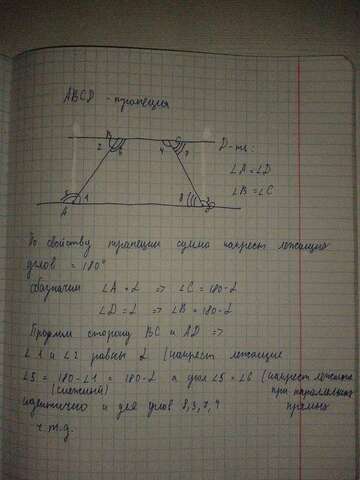 ABCD - трапеция
Д-ть:
∠A = ∠D
∠B = ∠C
B
2 6 4 7
5 1 8 3
A
По свойству трапеции сумма накрест лежащих
углов = 180°
обозначим ∠A = L => ∠C = 180-L
∠D = L => ∠B = 180-L
Продлим сторону BC и AD =>
∠1 и ∠2 равны L (накрест лежащие
∠5 = 180-∠1 = 180-L а угол ∠5 = ∠6 (накрест лежащие
(смежный) при параллельных
идентично и для углов 8,3,7,4 прямых
ч.т.д.